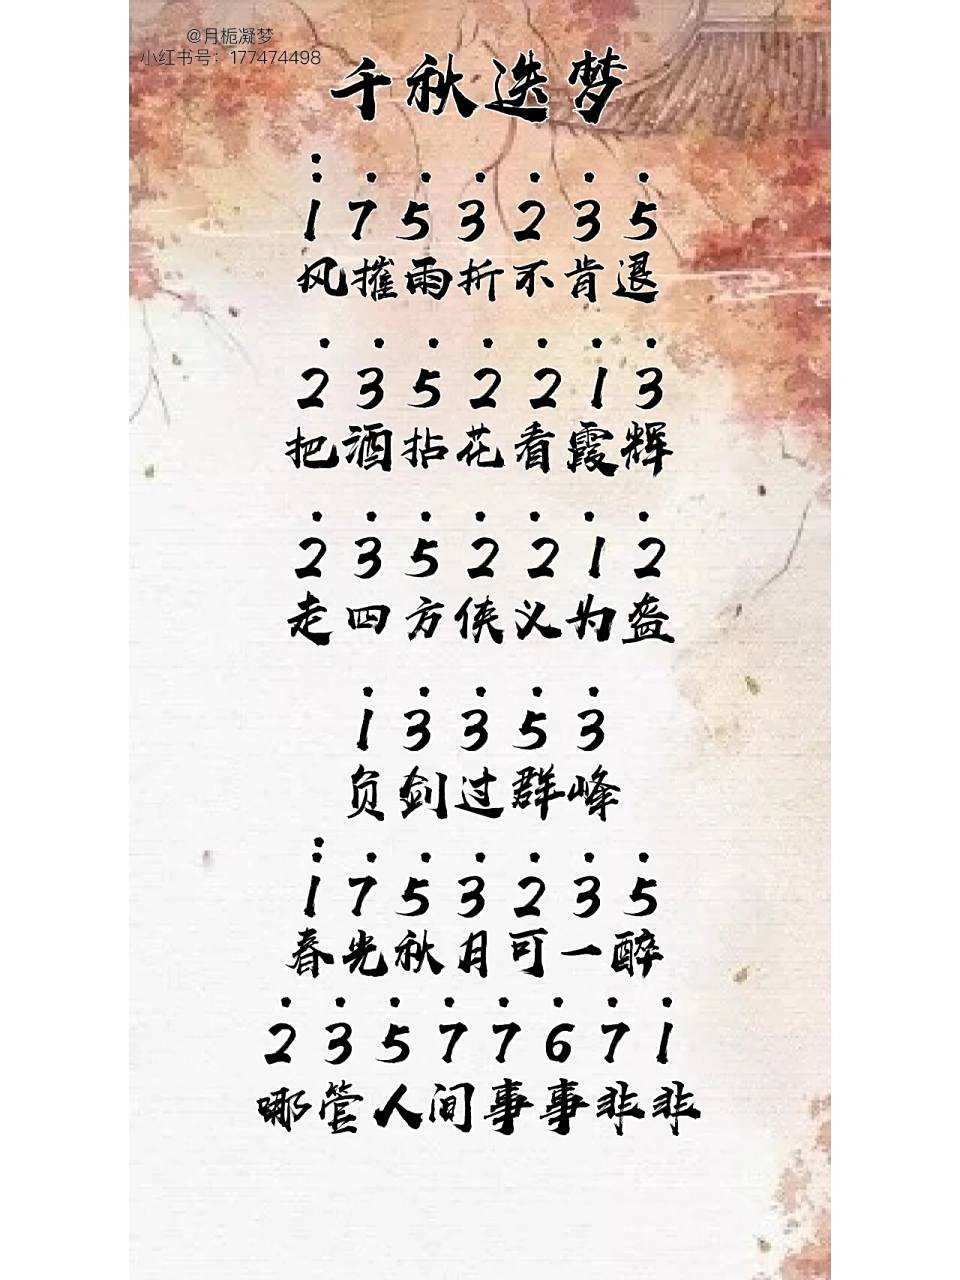 @月栀凝梦
小红书号：177474498
千秋迭梦
1 7 5 3 2 3 5
风摧雨折不肯退
2 3 5 2 2 1 3
把酒拈花看霞辉
2 3 5 2 2 1 2
走四方侠义为盔
1 3 3 5 3
负剑过群峰
1 7 5 3 2 3 5
春光秋月可一醉
2 3 5 7 7 6 7 1
哪管人间事事非非